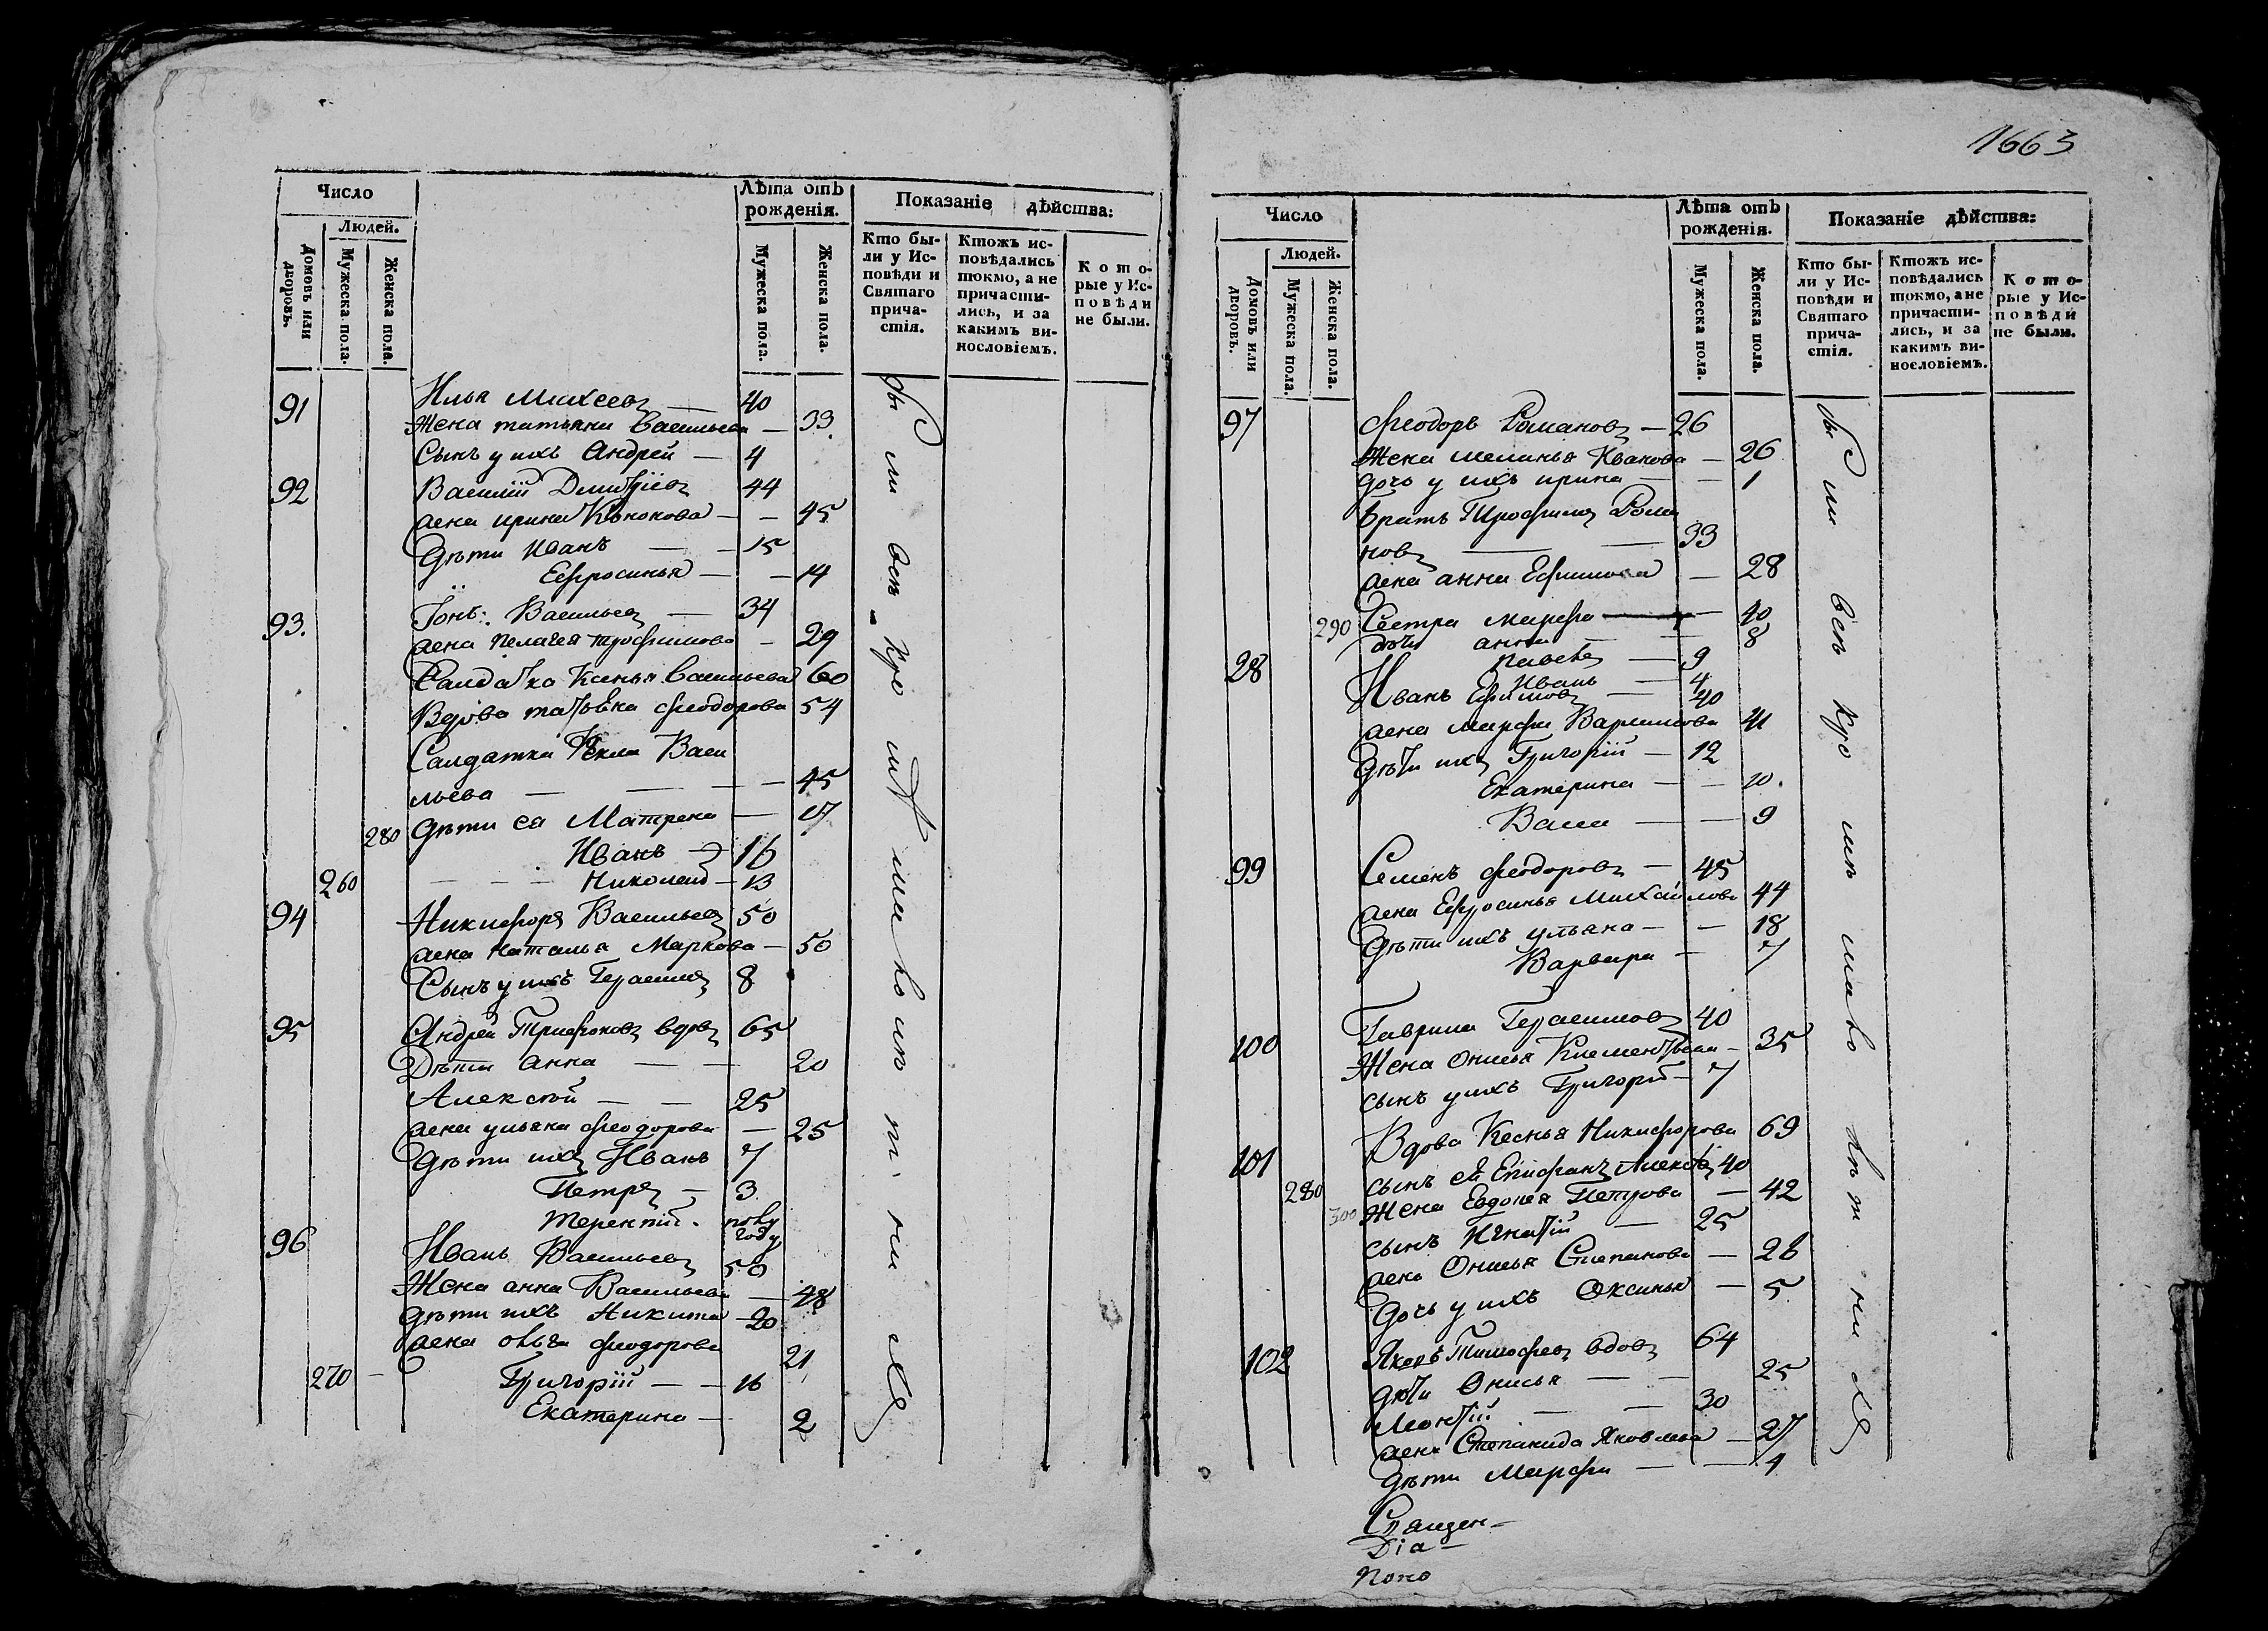 1663
Число
Людей.
Домовъ или дворовъ.
Мужеска пола.
Женска пола.
Лѣта отъ рожденія.
Мужеска пола.
Женска пола.
Показаніе дѣйства:
Кто бы-
ли у Ис-
повѣди и
Святаго
прича-
стія.
Ктожъ ис-
повѣдались
токмо, а не
причасти-
лись, и за
какимъ ви-
нословіемъ.
Кото-
рые у Ис-
повѣди
не были.
91 Илья Михеевъ — 40
Жена татьяна Васильева — 33
Сынъ у ихъ Андрей — 4
92 Василий Дмитріевъ 44
жена ирина — — 45
Дѣти Иванъ — — 15
Ефросинья — — 14
93. Васильевъ — 34
жена пелагея трофимова — 29
Салдатка Ксенья Васильева 60
Вдова феодорова 54
Салдатка Фекла Васи
льева — — — — 45
280 Дѣти ея Матрена — 17
Иванъ — 16
260 — — — Николай — 13
94 Никифоръ Васильевъ 50
жена наталья Маркова — 50
Сынъ у ихъ Герасимъ 8
95 Андрей Трифоновъ вдовъ 65
Дѣти Анна — — 20
Алексѣй — — 25
жена ульяна феодорова — 25
Дѣти ихъ Иванъ 7
Петръ — 3
терентій. полу
году
96 Иванъ Васильевъ 50
Жена анна Васильева — 48
Дѣти ихъ Никита — 20
жена ольга феодорова 21
270 — Григорій — — 16
Екатерина — 2
были всѣ
Число
Людей.
Домовъ или дворовъ.
Мужеска пола
Женска пола.
Лѣта отъ рожденія.
Мужеска пола.
Женска пола.
Показаніе дѣйства:
Кто бы-
ли у Ис-
повѣди и
Святаго
прича-
стія.
Ктожъ ис-
повѣдались
токмо, а не
причасти-
лись, и за
какимъ ви-
нословіемъ.
Кото-
рые у Ис-
повѣди
не были.
97 Феодоръ Романовъ — 26
Жена меланья Иванова — 26
дочь у ихъ ирина — — 1
Братъ Трофимъ Рома
новъ — — 33
жена анна Ефимова — 28
290 Сестра марфа — — 40
дѣти анна — — 8
павелъ — 9
Иванъ — 4
28 Иванъ Ефимовъ — 40
жена марфа 41
Дѣти ихъ Григорій — 12
Екатерина — — 10.
— — 9
99 Семенъ феодоровъ — 45
жена Ефросинья Михайлова 44
Дѣти ихъ ульяна — — 18
Варвара — 7
100 Гаврила Герасимовъ 40
Жена Онисья — 35
сынъ у ихъ Григорій — 7
101 Вдова Ксенья Никифорова 69
280 сынъ её Епифанъ 40
300 Жена Евдокея Петрова — 42
сынъ Игнатій — 25
жена Онисья Степанова — 26
Дочь у ихъ Оксинья — 5
102 Яковъ Тимофеевъ вдовъ 64
дѣти Онисья — — 25
Леонтій — — 30
жена Степанида Яковлева — 27
Дѣти Марфа — — 4
были всѣ
Священ—
Dia—
Поно